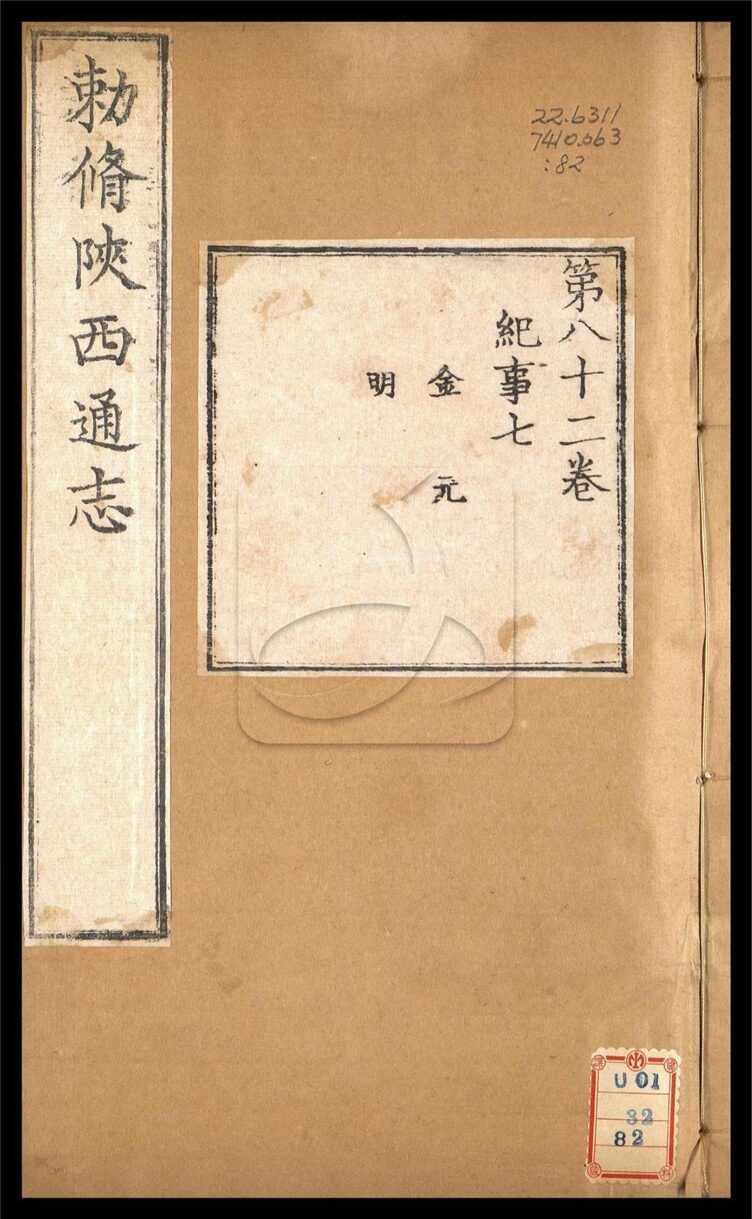 勅脩陝西通志
22.6311
7410.063
:82
第八十二卷
紀事七
金 元
明
U 01
32
82